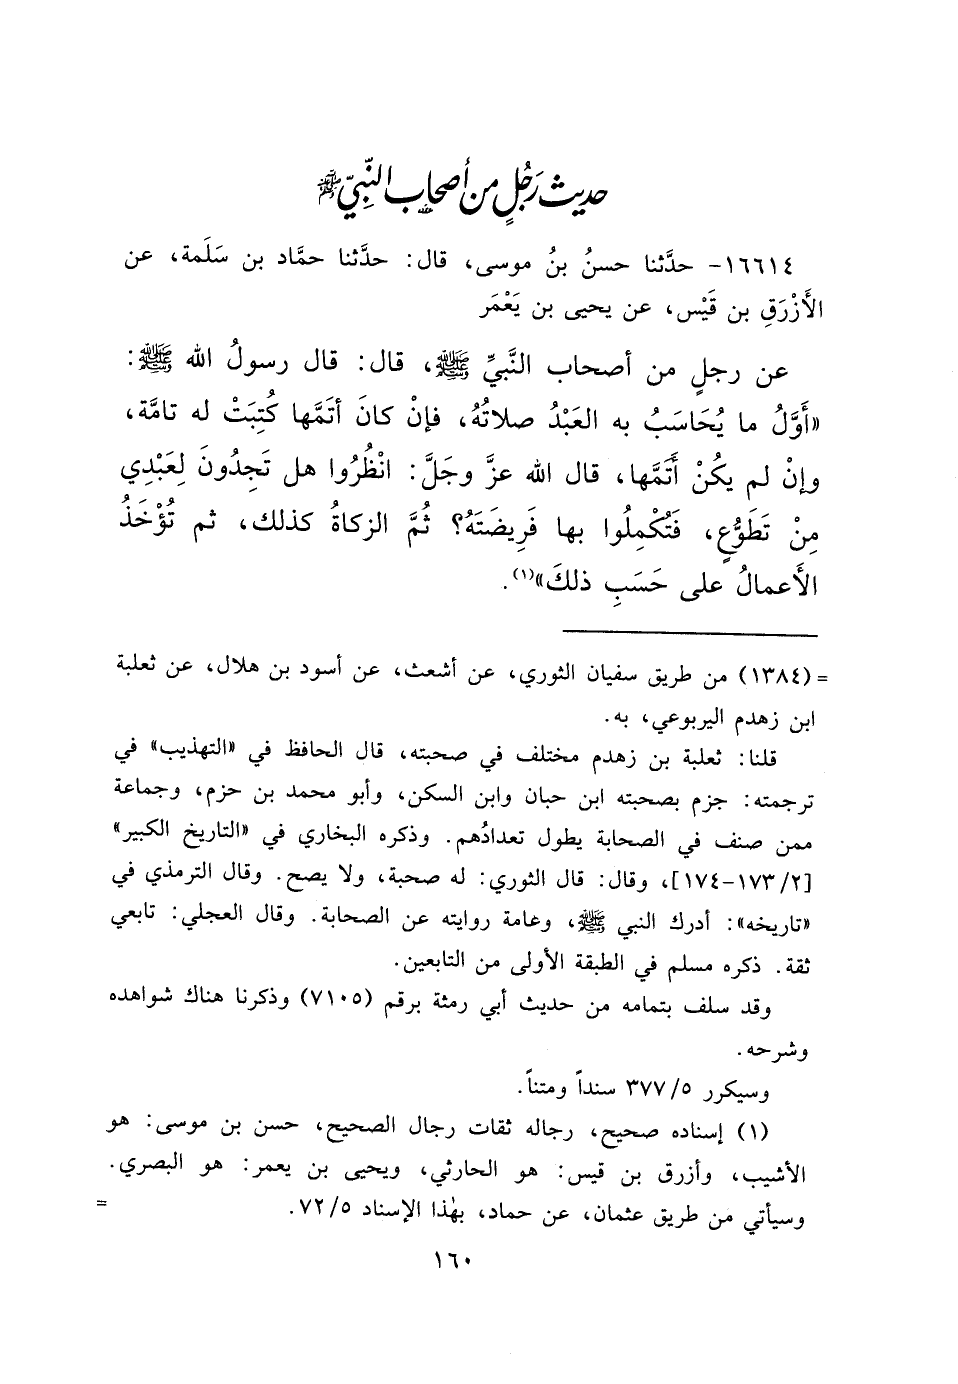 حديث رَجُلٍ من أصحاب النَّبِيّ ﷺ
١٦٦١٤- حدَّثنا حسنُ بنُ موسى، قال: حدَّثنا حمَّاد بن سَلَمة، عن
الأَزْرَقِ بن قَيْس، عن يحيى بن يَعْمَر
عن رجلٍ من أصحاب النَّبيِّ ﷺ، قال: قال رسولُ الله ﷺ:
«أَوَّلُ ما يُحَاسَبُ به العَبْدُ صلاتُهُ، فإنْ كانَ أتَمَّها كُتِبَتْ له تامَّة،
وإنْ لم يكُنْ أَتَمَّها، قال الله عزَّ وجَلَّ: انْظُرُوا هل تَجِدُونَ لِعَبْدِي
مِنْ تَطَوُّعٍ، فَتُكْمِلُوا بها فَرِيضَتَهُ؟ ثُمَّ الزكاةُ كذلك، ثم تُؤْخَذُ
الأَعمالُ على حَسَبِ ذلكَ»(١).
= (١٣٨٤) من طريق سفيان الثوري، عن أشعث، عن أسود بن هلال، عن ثعلبة
ابن زهدم اليربوعي، به.
قلنا: ثعلبة بن زهدم مختلف في صحبته، قال الحافظ في «التهذيب» في
ترجمته: جزم بصحبته ابن حبان وابن السكن، وأبو محمد بن حزم، وجماعة
ممن صنف في الصحابة يطول تعدادُهم. وذكره البخاري في «التاريخ الكبير»
[١٧٣/٢-١٧٤]، وقال: قال الثوري: له صحبة، ولا يصح. وقال الترمذي في
«تاريخه»: أدرك النبي ﷺ، وعامة روايته عن الصحابة. وقال العجلي: تابعي
ثقة. ذكره مسلم في الطبقة الأولى من التابعين.
وقد سلف بتمامه من حديث أبي رمثة برقم (٧١٠٥) وذكرنا هناك شواهده
وشرحه.
وسيكرر ٣٧٧/٥ سنداً ومتناً.
(١) إسناده صحيح، رجاله ثقات رجال الصحيح، حسن بن موسى: هو
الأشيب، وأزرق بن قيس: هو الحارثي، ويحيى بن يعمر: هو البصري.
وسيأتي من طريق عثمان، عن حماد، بهٰذا الإسناد ٧٢/٥. =
١٦٠